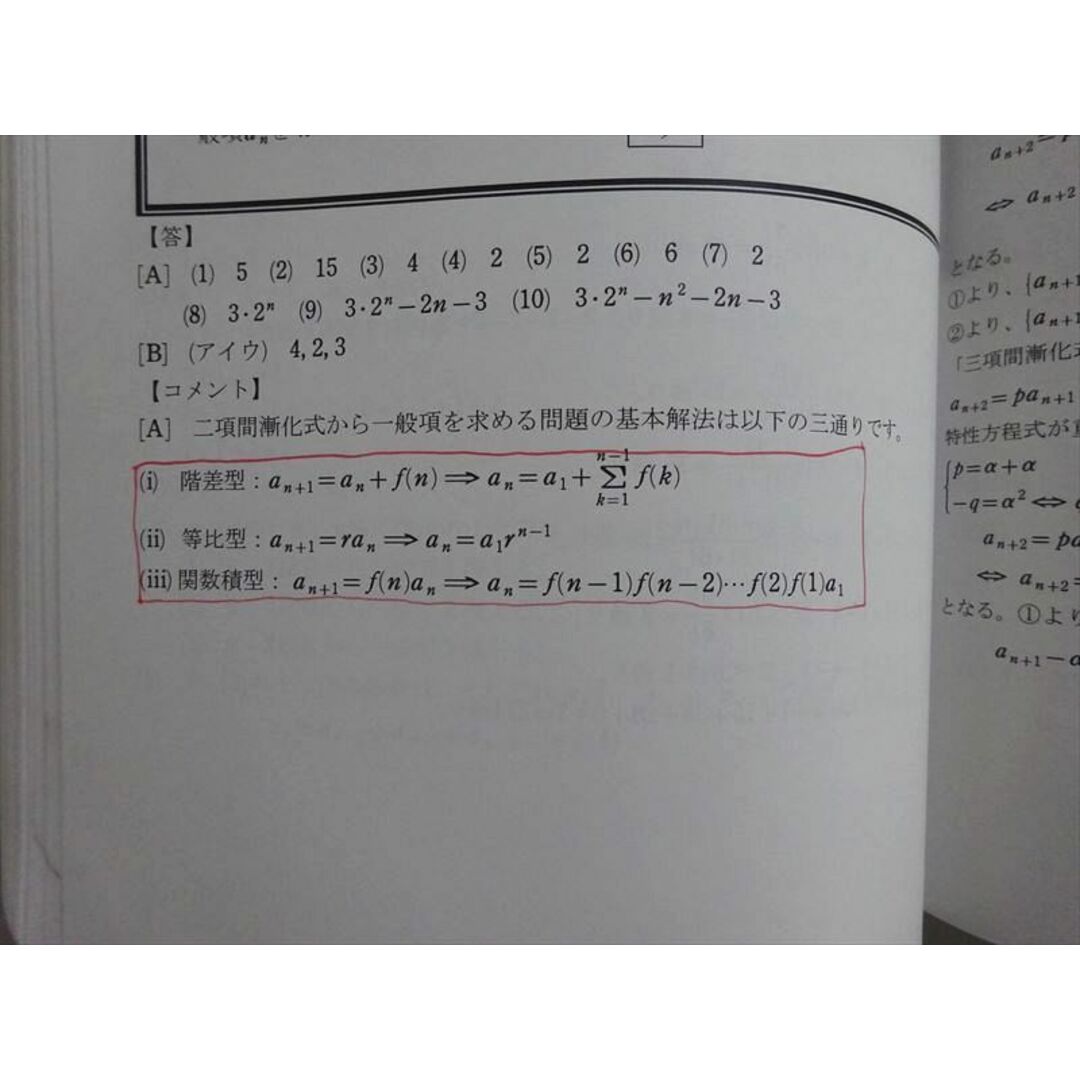 【答】
[A] (1) 5 (2) 15 (3) 4 (4) 2 (5) 2 (6) 6 (7) 2
(8) 3·2ⁿ (9) 3·2ⁿ−2n−3 (10) 3·2ⁿ−n²−2n−3
[B] (アイウ) 4, 2, 3
【コメント】
[A] 二項間漸化式から一般項を求める問題の基本解法は以下の三通りです。
(i) 階差型：aₙ₊₁=aₙ+f(n)⟹aₙ=a₁+∑_{k=1}^{n−1} f(k)
(ii) 等比型：aₙ₊₁=raₙ⟹aₙ=a₁rⁿ⁻¹
(iii) 関数積型：aₙ₊₁=f(n)aₙ⟹aₙ=f(n−1)f(n−2)⋯f(2)f(1)a₁
aₙ₊₂
⇔ aₙ₊₂
となる。
①より、{aₙ₊₁
②より、{aₙ₊₁
「三項間漸化
aₙ₊₂=paₙ₊₁
特性方程式が
p=α+α
−q=α²⇔
aₙ₊₂=pa
⇔ aₙ₊₂=
となる。①より
aₙ₊₁−a